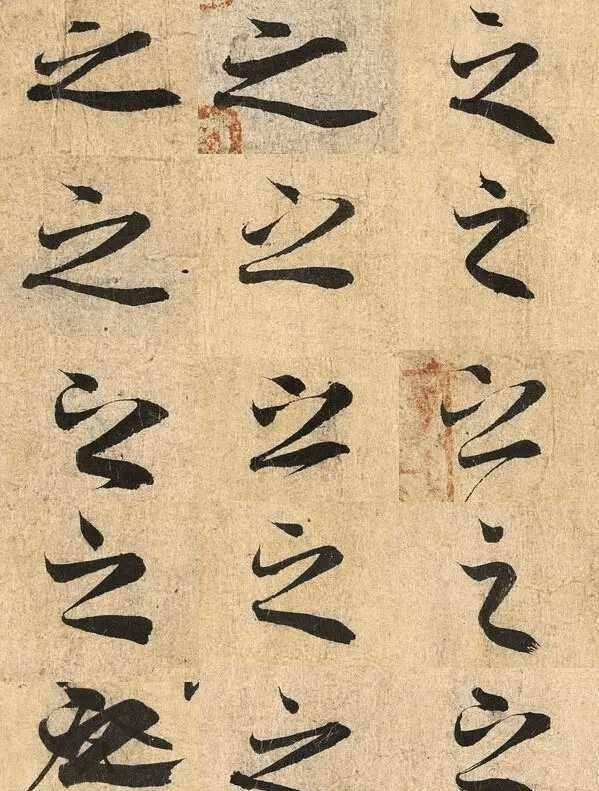 之 之 之
之 之 之
之 之 之
之 之 之
之 之 之